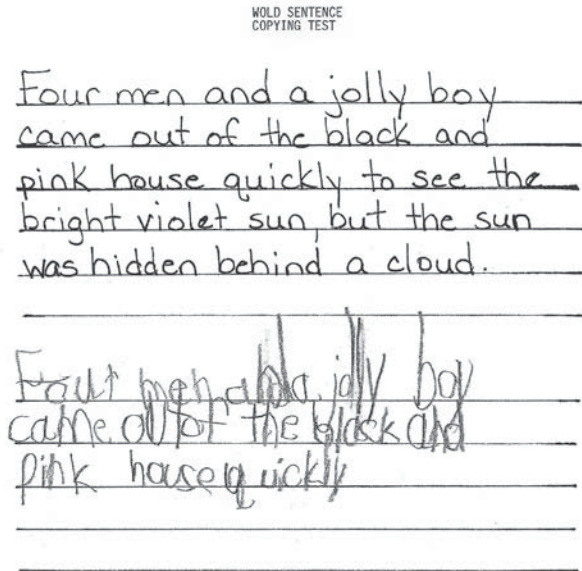 WOLD SENTENCE
COPYING TEST
Four men and a jolly boy
came out of the black and
pink house quickly to see the
bright violet sun, but the sun
was hidden behind a cloud.
Four men and a jolly boy
came out of the black and
pink house quickly